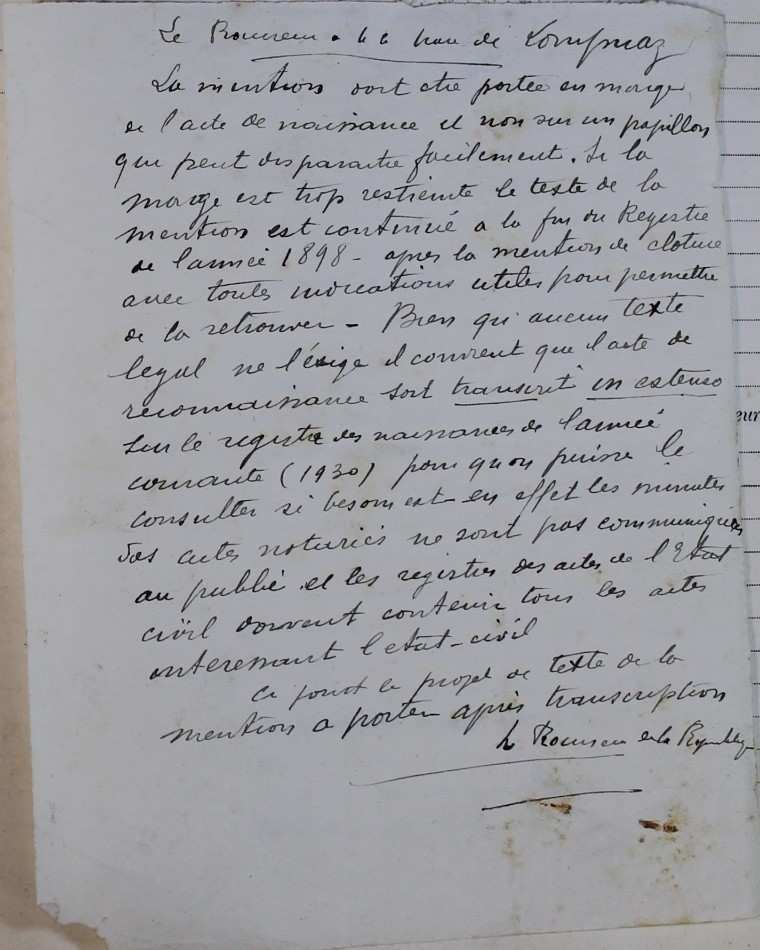 Le Procureur a M le Maire de Lompnaz
La mention doit etre portée en marge
de l'acte de naissance et non sur un papillon
qui peut disparaitre facilement. Si la
marge est trop restreinte le texte de la
mention est continué a la fin du Registre
de l'année 1898 - apres la mention de cloture
avec toutes indications utiles pour permettre
de la retrouver - Bien qu'aucun texte
legal ne l'exige il convient que l'acte de
reconnaissance soit transcrit in extenso
sur le registre des naissances de l'année
courante (1930) pour qu'on puisse le
consulter si besoin est - en effet les minutes
des actes notariés ne sont pas communiquées
au public et les registres des actes de l'Etat
civil doivent contenir tous les actes
interessant l'etat-civil
Ci joint le projet de texte de la
mention a porter après transcription
Le Procureur de la Republique
eur